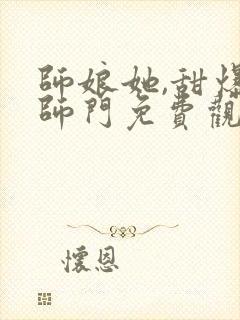 師娘她,甜爆
師門免費觀
懷恩